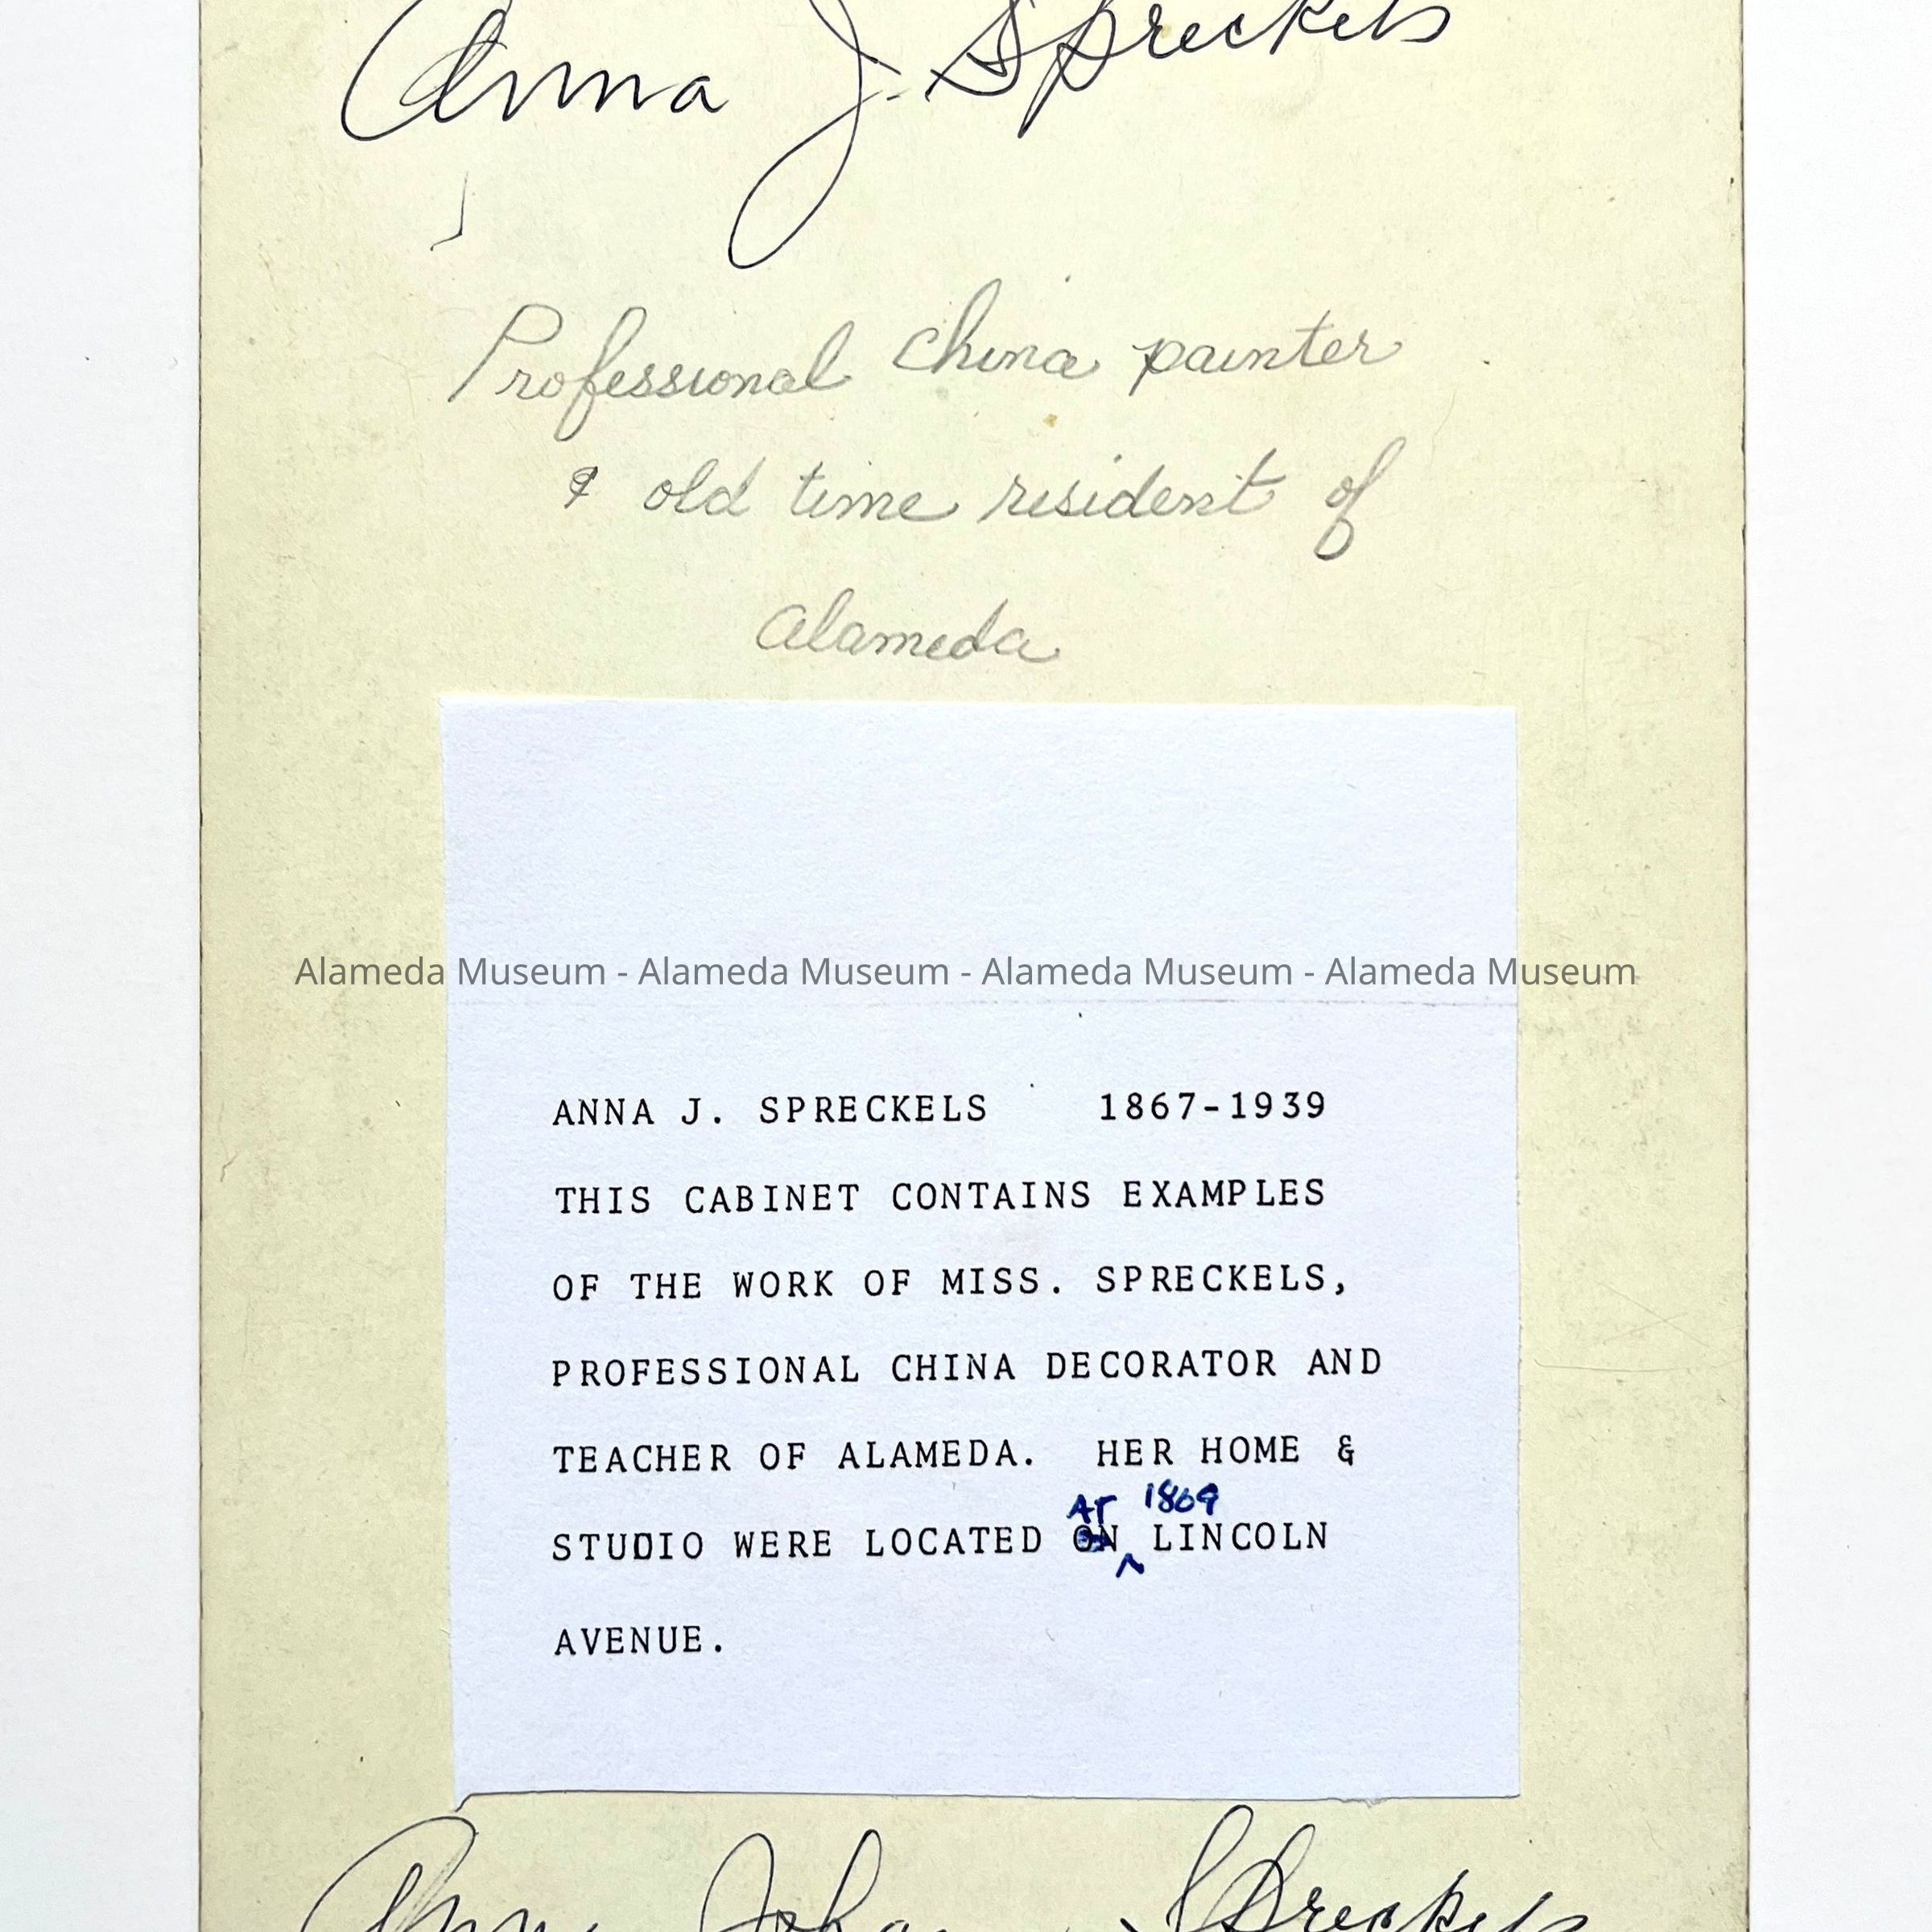 Anna J. Spreckels
Professional china painter
& old time resident of
Alameda
Alameda Museum - Alameda Museum - Alameda Museum - Alameda Museum
ANNA J. SPRECKELS 1867-1939
THIS CABINET CONTAINS EXAMPLES
OF THE WORK OF MISS. SPRECKELS,
PROFESSIONAL CHINA DECORATOR AND
TEACHER OF ALAMEDA. HER HOME &
AT 1869
STUDIO WERE LOCATED ON LINCOLN
AVENUE.
Spreckels